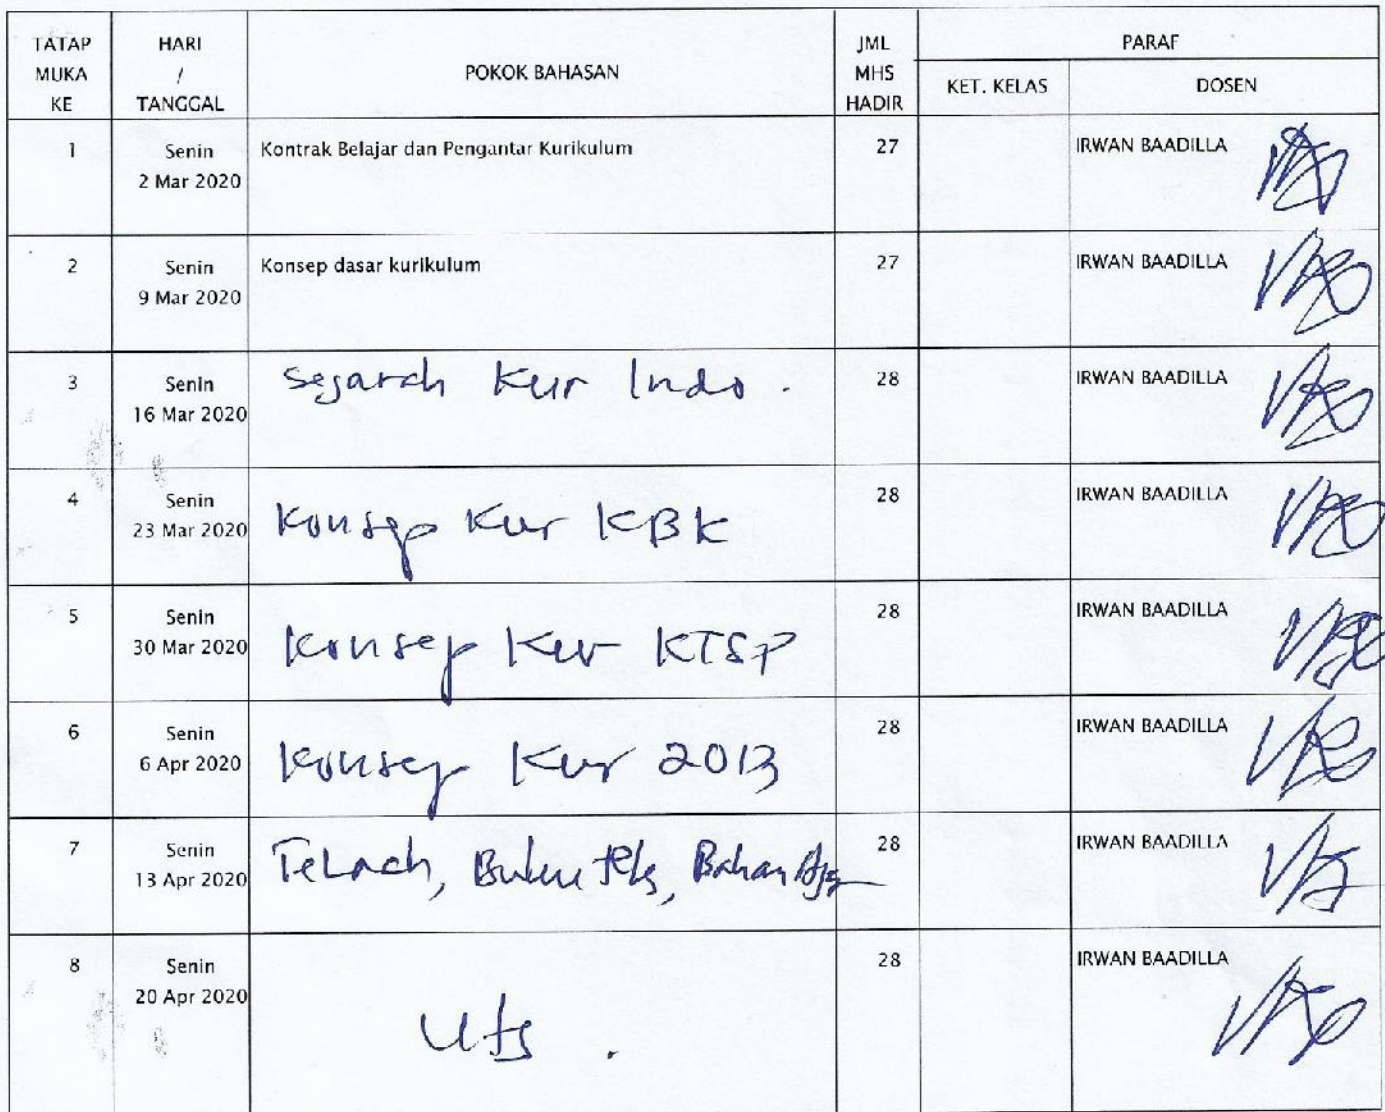 TATAP MUKA KE
HARI / TANGGAL
POKOK BAHASAN
JML MHS HADIR
PARAF
KET. KELAS
DOSEN
1 Senin 2 Mar 2020 Kontrak Belajar dan Pengantar Kurikulum 27 IRWAN BAADILLA
2 Senin 9 Mar 2020 Konsep dasar kurikulum 27 IRWAN BAADILLA
3 Senin 16 Mar 2020 Sejarah Kur Indo. 28 IRWAN BAADILLA
4 Senin 23 Mar 2020 Konsep Kur KBK 28 IRWAN BAADILLA
5 Senin 30 Mar 2020 Konsep Kur KTSP 28 IRWAN BAADILLA
6 Senin 6 Apr 2020 Konsep Kur 2013 28 IRWAN BAADILLA
7 Senin 13 Apr 2020 Telaah, Buku Teks, Bahan Ajar 28 IRWAN BAADILLA
8 Senin 20 Apr 2020 Uts. 28 IRWAN BAADILLA